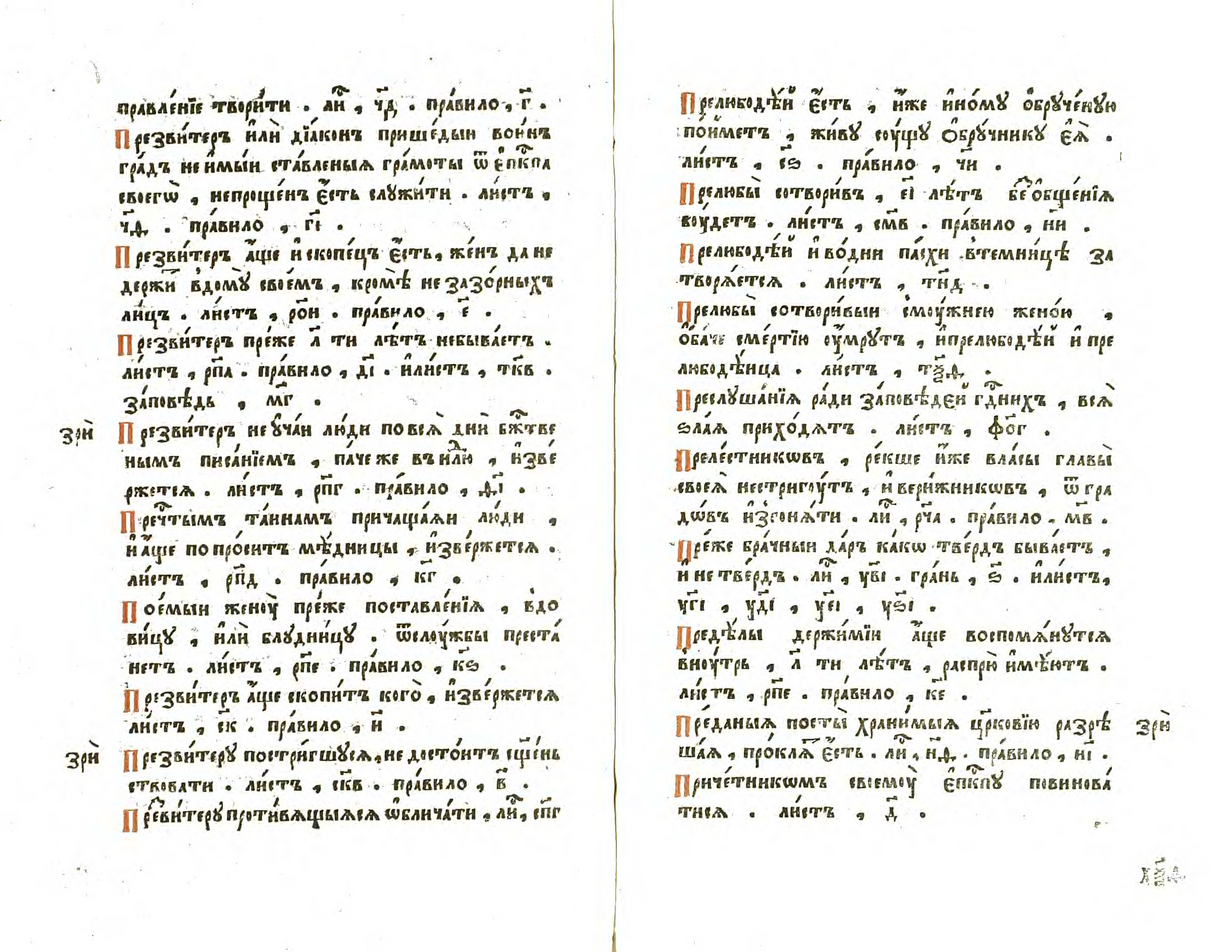 правле́нїе твори́ти . ли҇ , ч҃д . пра́вило , г҃ .
Презви́теръ и҆лѝ дїа́конъ прише́дыи во и҆́нъ
гра́дъ не и҆мы́и ста́вленыѧ гра́моты ѿ є҆пк҇па
своегѡ̀ , непроще́нъ є҆́сть слꙋжи́ти . ли́стъ ,
ч҃д . пра́вило , г҃і .
Презви́теръ а҆́ще и҆ скопе́цъ є҆́сть , же́нъ да не
держи́т в̾домꙋ̀ свое́мъ , кромѣ̀ не зазо́рныхъ
ли́цъ . ли́стъ , ро҃и . пра́вило , є҃ .
Презви́теръ пре́же л҃ ти лѣ́тъ небыва́етъ .
ли́стъ , рп҃а . пра́вило , д҃і . и҆ли́стъ , тк҃в .
за́повѣдь , м҃г .
зрѝ
Презви́теръ не ᲂу҆ча́и лю́ди по всѧ̀ дни̑ бж҇тве
нымъ писа́нїемъ , па́че же въ нд҇лю , и҆зве
ржетсѧ . ли́стъ , рп҃г . пра́вило , ѳ҃і .
Преч҇тымъ та́инамъ причаща́ѧи лю́ди ,
и҆ а҆́ще попро́ситъ мѣ́дницы , и҆зве́ржетсѧ .
ли́стъ , рп҃д . пра́вило , к҃г .
Пое́мыи женꙋ̀ пре́же поставле́нїѧ , вдо
ви́цꙋ , и҆лѝ блꙋдни́цꙋ . ѿслꙋ́жбы преста́
нетъ . ли́стъ , рп҃є . пра́вило , к҃ѕ .
Презви́теръ а҆́ще скопи́тъ кого̀ , и҆зве́ржетсѧ
ли́стъ , с҃к . пра́вило , и҃ .
зрѝ
Презви́терꙋ постри́гшꙋсѧ , не досто́итъ сщ҃е́нь
ствовати . ли́стъ , ск҃в . пра́вило , в҃ .
Презви́терꙋ проти́вѧщыѧсѧ ѡ҆блича́ти , ли҇ , сп҃г
Прелюбодѣ́й є҆́сть , и҆́же и҆но́мꙋ ѻ҆брꙋче́нꙋю
пои́метъ , жи́вꙋ сꙋ́щꙋ ѻ҆брꙋ́чникꙋ є҆ѧ̀ .
ли́стъ , с҃ѕ . пра́вило , ч҃и .
Прелюбы̀ сотвори́въ , є҃і лѣ́тъ без̾ ѻ҆бще́нїѧ
бꙋ́детъ . ли́стъ , см҃в . пра́вило , н҃и .
Прелюбодѣ́й и҆ во́дни па́схи в̾темни́цѣ за
творѧ́етсѧ . ли́стъ , тн҃д .
Прелюбы̀ сотвори́выи с̾мꙋ́жнею жено́ю ,
ѻ҆ба́че сме́ртїю ᲂу҆́мрꙋтъ , и҆прелюбодѣ́й и҆ пре
любодѣ́ица . ли́стъ , тѯ҃д .
Преслꙋша́нїѧ ра́ди за́повѣдей гд҇нихъ , всѧ̀
ѕла́ѧ прихо́дѧтъ . ли́стъ , фо҃г .
Преле́стникѡвъ , ре́кше и҆́же власы̀ главы̀
своеѧ̀ нестригꙋ́тъ , и҆ вери́жникѡвъ , ѿ гра
дѡ́въ и҆згонѧ́ти . ли҇ , рч҃а . пра́вило . м҃в .
Пре́же бра́чныи да́ръ ка́кѡ тве́рдъ быва́етъ ,
и҆ не тве́рдъ . ли҇ , ув҃і . гра́нь , ѕ҃ . и҆ли́стъ ,
уг҃і , уд҃і , уе҃і , уѕ҃і .
Предѣ́лы держи́мїи а҆́ще воспомѧ́нꙋтсѧ
внꙋ́трь , л҃ ти лѣ́тъ , ра́спрю и҆мѣ́ютъ .
ли́стъ , рп҃е . пра́вило , к҃е .
Пре́даныѧ посты̀ храни́мыѧ цр҃ковїю разрѣ
зрѝ
ша́ѧ , про́клѧтъ є҆́сть . ли҇ , н҃ѳ . пра́вило , и҃і .
Приче́тникѡмъ своемꙋ̀ є҆пк҇пꙋ повинова́
тисѧ . ли́стъ , д҃ .